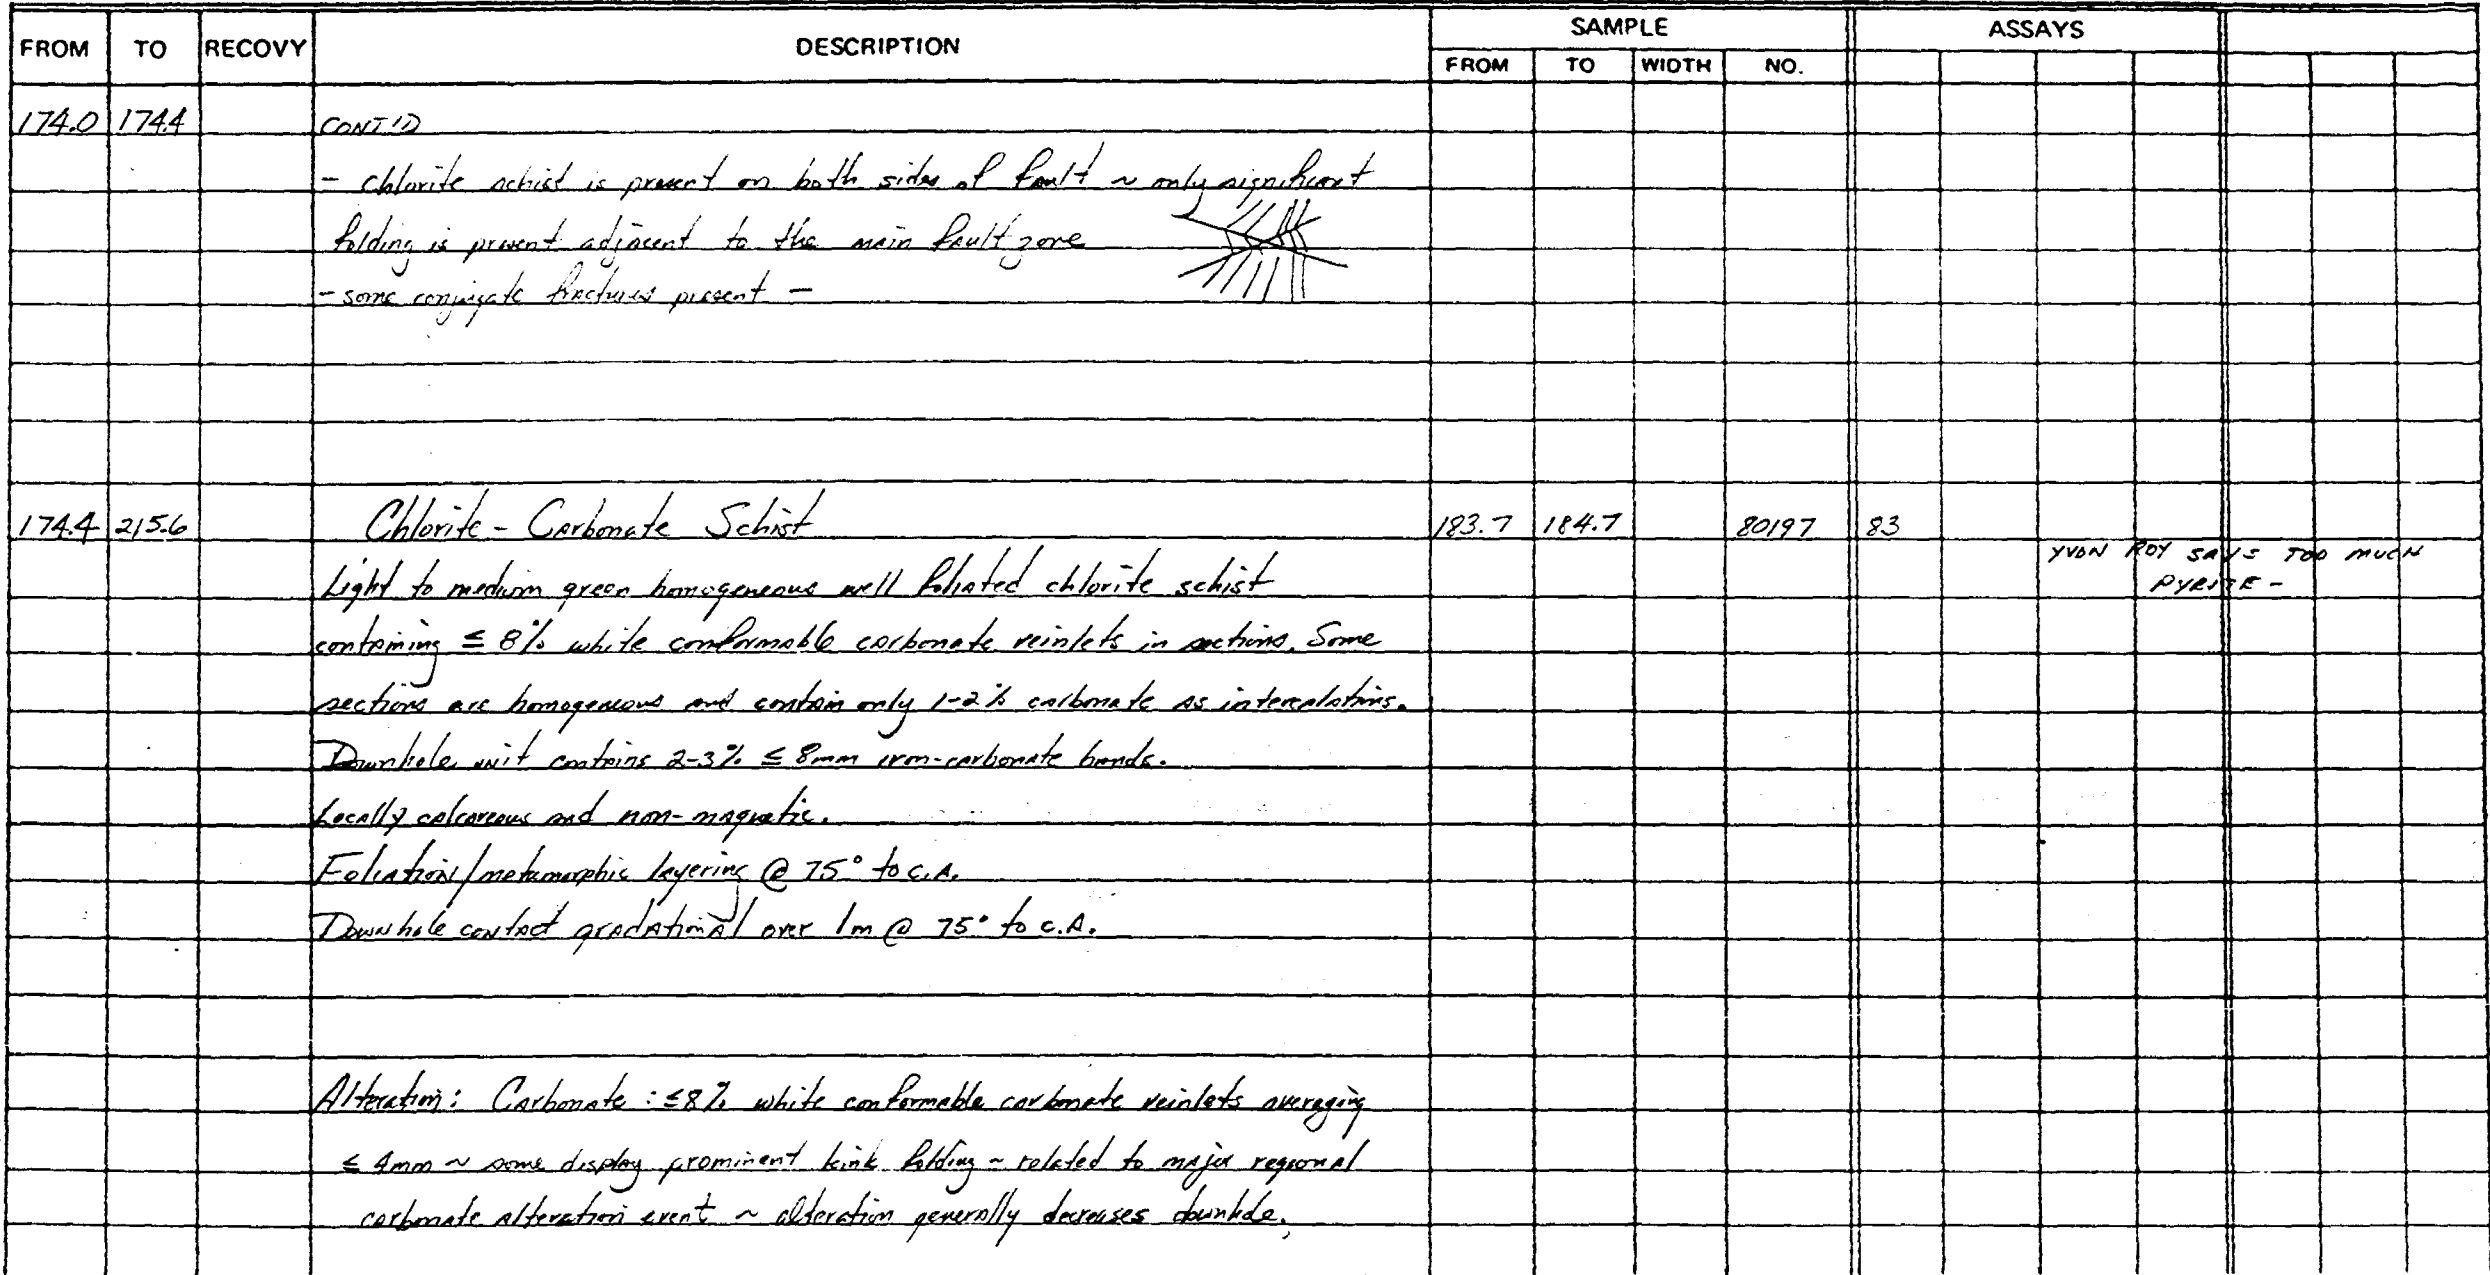 FROM TO RECOVY DESCRIPTION SAMPLE ASSAYS
FROM TO WIDTH NO.
174.0 174.4 CONT'D
- chlorite schist is present on both sides of fault ~ only significant
folding is present adjacent to the main fault zone
- some conjugate fractures present -
174.4 215.6 Chlorite - Carbonate Schist 183.7 184.7 80197 83
YVON ROY SAYS TOO MUCH
PYRITE -
Light to medium green homogeneous well foliated chlorite schist
containing ≤ 8% white conformable carbonate veinlets in sections. Some
sections are homogeneous and contain only 1-2% carbonate as intercalations.
Downhole unit contains 2-3% ≤ 8mm iron-carbonate bands.
Locally calcareous and non-magnetic.
Foliation/metamorphic layering @ 75° to C.A.
Downhole contact gradational over 1m @ 75° to C.A.
Alteration: Carbonate : ≤8% white conformable carbonate veinlets averaging
≤ 4mm ~ some display prominent kink folding ~ related to major regional
carbonate alteration event ~ alteration generally decreases downhole.